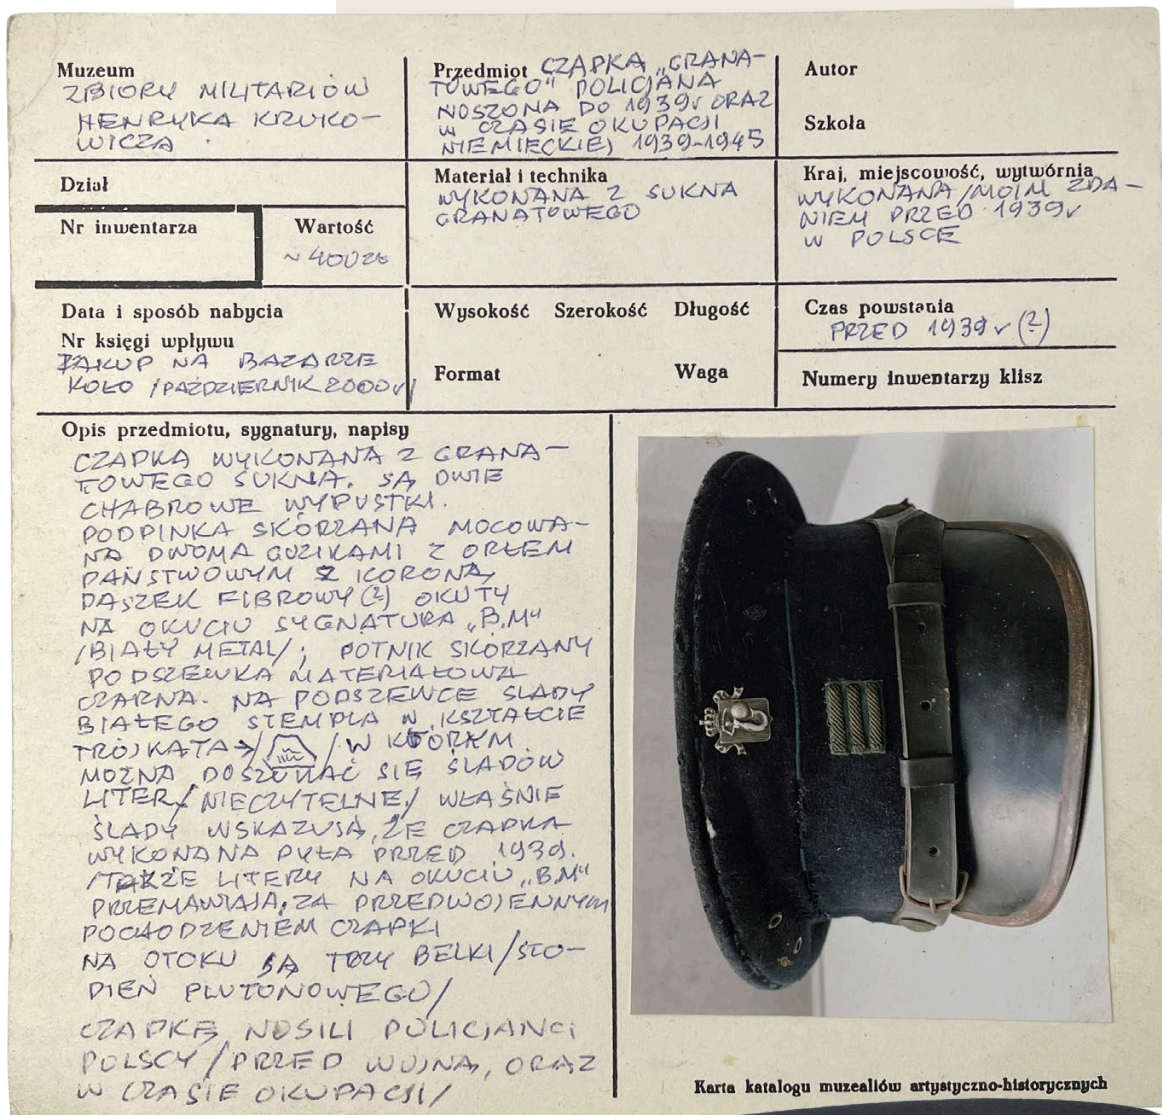 Muzeum
ZBIORY MILITARIÓW
HENRYKA KRUKO-
WICZA.
Przedmiot CZAPKA „GRANA-
TOWEGO" POLICJANA
NOSZONA DO 1939r ORAZ
W CZASIE OKUPACJI
NIEMIECKIEJ 1939-1945
Autor
Szkoła
Dział
Nr inwentarza
Wartość
~ 400zł
Materiał i technika
WYKONANA Z SUKNA
GRANATOWEGO
Kraj, miejscowość, wytwórnia
WYKONANA/MOIM ZDA-
NIEM PRZED 1939r
W POLSCE
Data i sposób nabycia
Nr księgi wpływu
ZAKUP NA BAZARZE
KOŁO /PAŹDZIERNIK 2000r/
Wysokość Szerokość Długość
Format Waga
Czas powstania
PRZED 1939r (?)
Numery inwentarzy klisz
Opis przedmiotu, sygnatury, napisy
CZAPKA WYKONANA Z GRANA-
TOWEGO SUKNA. SĄ DWIE
CHABROWE WYPUSTKI.
PODPINKA SKÓRZANA MOCOWA-
NA DWOMA GUZIKAMI Z ORŁEM
PAŃSTWOWYM Z KORONĄ,
DASZEK FIBROWY(?) OKUTY
NA OKUCIU SYGNATURA „B.M"
/BIAŁY METAL/; POTNIK SKÓRZANY
PODSZEWKA MATERIAŁOWA
CZARNA. NA PODSZEWCE ŚLADY
BIAŁEGO STEMPLA W KSZTAŁCIE
TRÓJKĄTA → / / W KTÓRYM
MOŻNA DOSZUKAĆ SIĘ ŚLADÓW
LITER/NIECZYTELNE/ WŁAŚNIE
ŚLADY WSKAZUJĄ, ŻE CZAPKA
WYKONANA BYŁA PRZED 1939.
/TAKŻE LITERY NA OKUCIU „B.M"
PRZEMAWIAJĄ ZA PRZEDWOJENNYM
POCHODZENIEM CZAPKI
NA OTOKU SĄ TRZY BELKI/STO-
PIEŃ PLUTONOWEGO/
CZAPKĘ NOSILI POLICJANCI
POLSCY /PRZED WOJNĄ, ORAZ
W CZASIE OKUPACJI/
Karta katalogu muzealiów artystyczno-historycznych